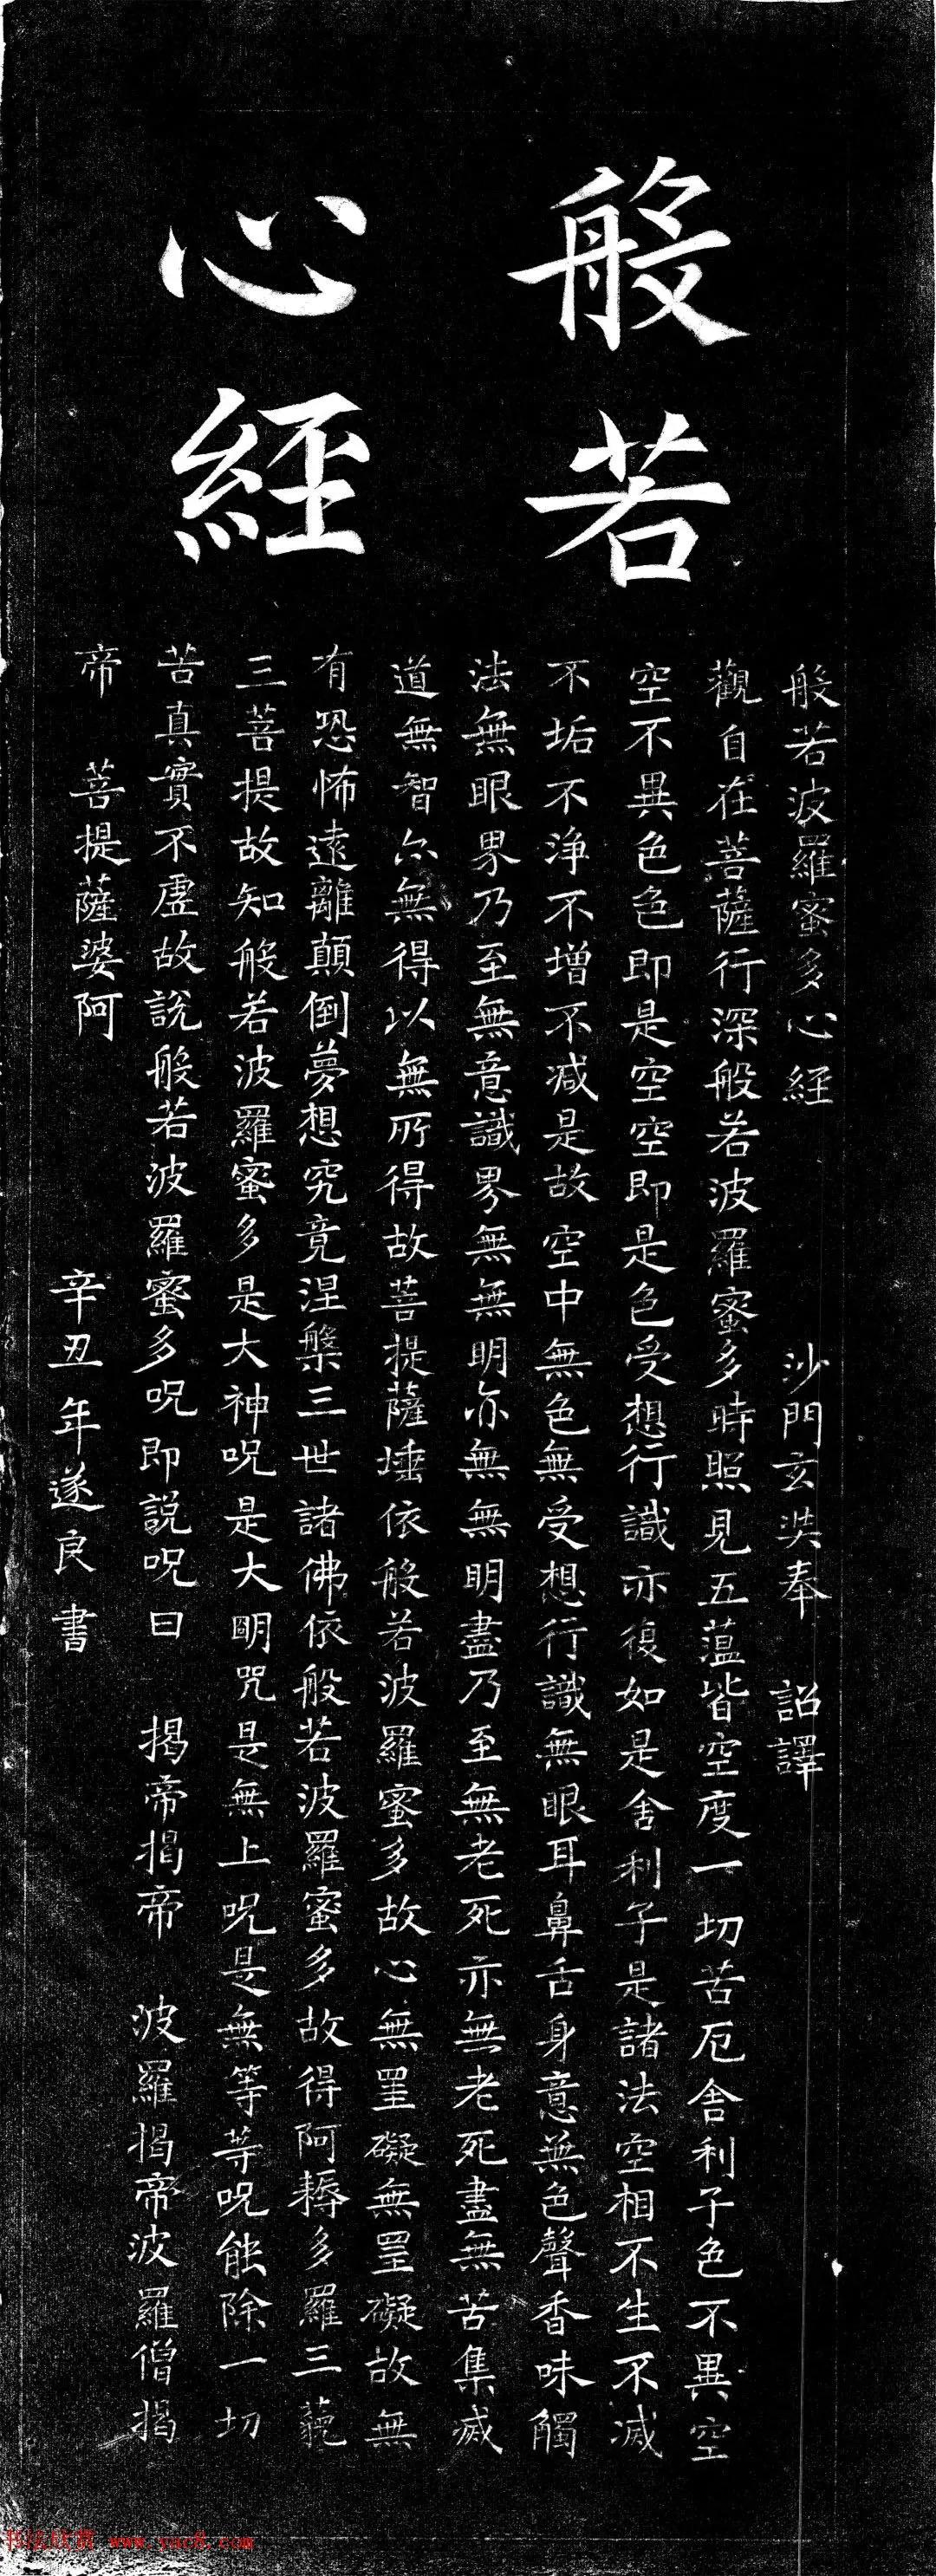 般若
心經
般若波羅蜜多心經 沙門玄奘奉 詔譯
觀自在菩薩行深般若波羅蜜多時照見五蕰皆空度一切苦厄舍利子色不異空
空不異色色即是空空即是色受想行識亦復如是舍利子是諸法空相不生不滅
不垢不淨不增不減是故空中無色無受想行識無眼耳鼻舌身意無色聲香味觸
法無眼界乃至無意識界無無明亦無無明盡乃至無老死亦無老死盡無苦集滅
道無智亦無得以無所得故菩提薩埵依般若波羅蜜多故心無罣礙無罣礙故無
有恐怖遠離顛倒夢想究竟涅槃三世諸佛依般若波羅蜜多故得阿耨多羅三藐
三菩提故知般若波羅蜜多是大神呪是大明咒是無上呪是無等等呪能除一切
苦真實不虛故說般若波羅蜜多呪即說呪曰 揭帝揭帝 波羅揭帝波羅僧揭
帝 菩提薩婆阿 辛丑年遂良書
www.yac8.com